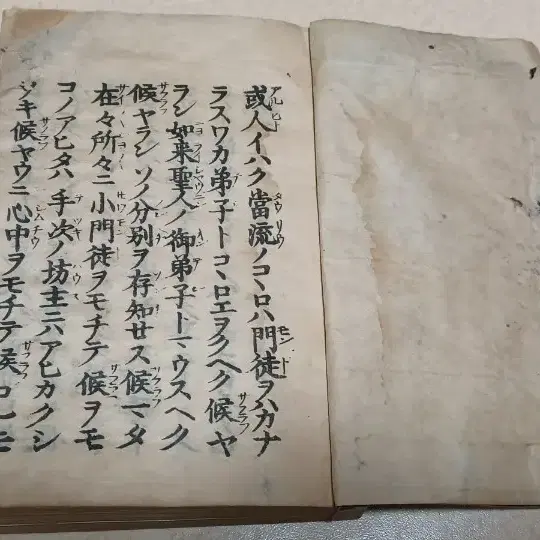 或人イハク當流ノコヽロハ門徒ヲハカナ
ラスワカ弟子トコヽロエヲクヘク候ヤ
ラン如来聖人ノ御弟子トマウスヘク
候ヤランソノ分別ヲ存知セス候マタ
在々所々ニ小門徒ヲモチテ候ヲモ
コノアヒタハ手次ノ坊主ニハアヒカクシ
ヲキ候ヤウニ心中ヲモチテ候